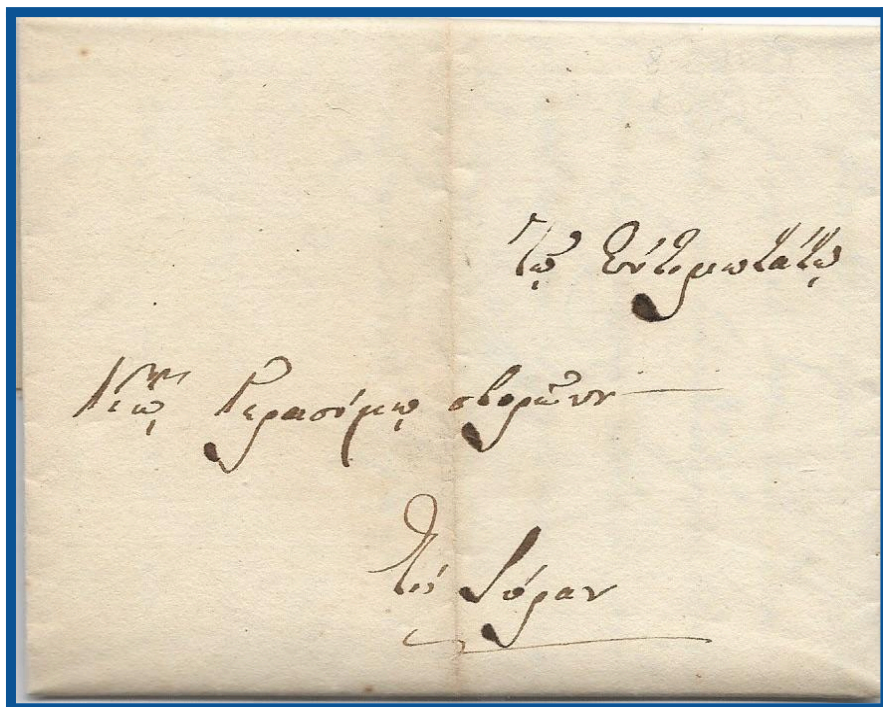 Τῷ Ἐντιμωτάτῳ
Κίῳ Γερασίμῳ σβορῶνον
Εἰς Σύραν